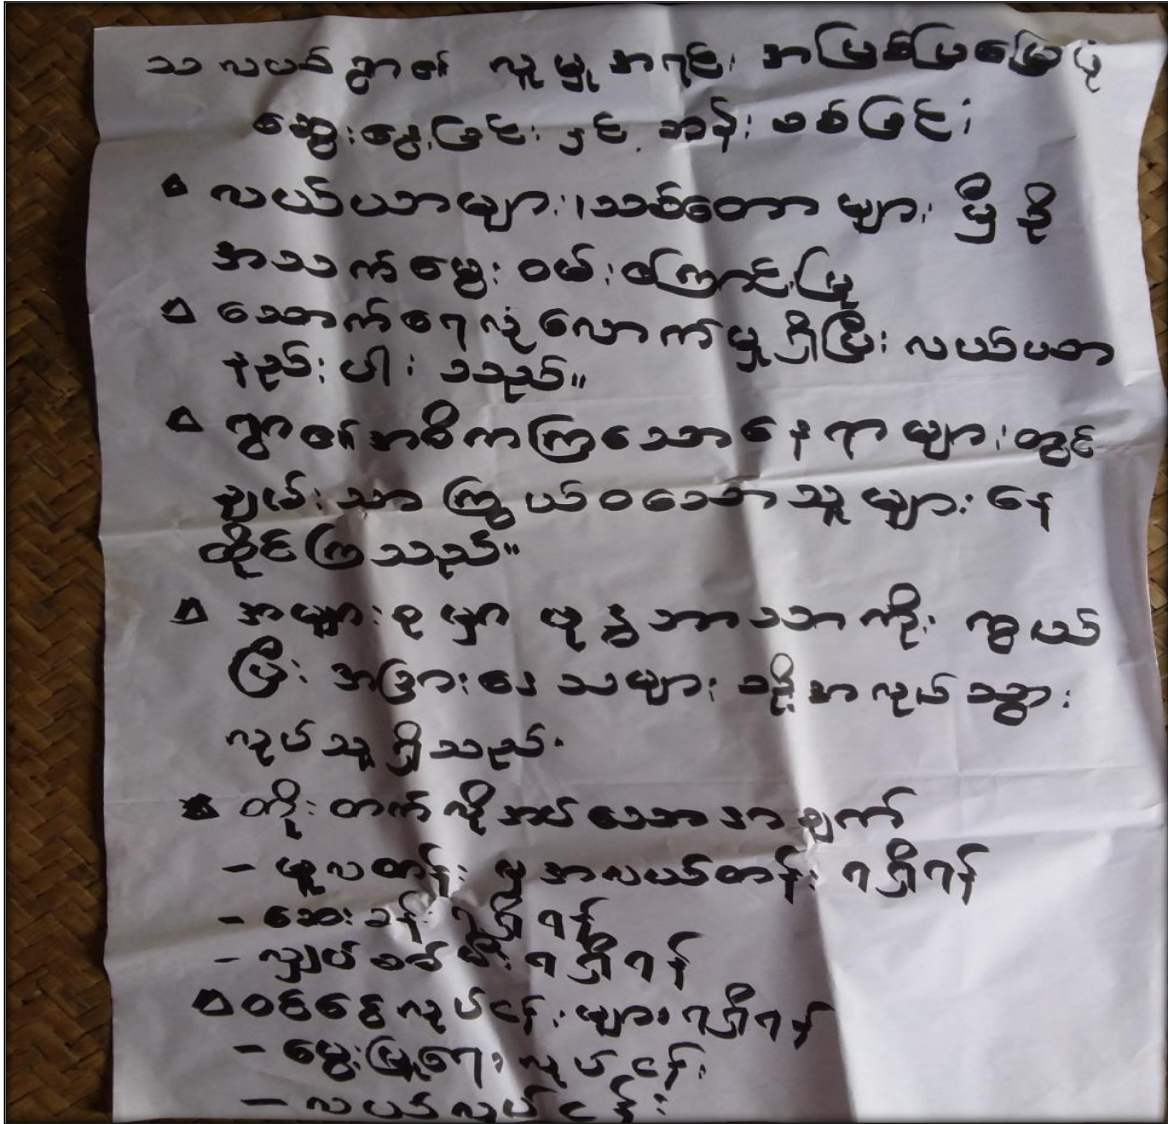 သလပတ် ရွာ၏ လူမှု အရင်း အမြစ်ပြမြေပုံ
ဆွေးနွေးခြင်း နှင့် ဆန်းစစ်ခြင်း
လယ်ယာများ၊ သစ်တောများ မှီခို
အသက်မွေး ဝမ်းကြောင်းပြု
သောက်ရေလုံလောက်မှုရှိပြီး လယ်မတာ
နည်းပါးသည်။
ရွာ၏ အဓိကကြသော နေရာများတွင်
ချမ်းသာကြွယ်ဝသော သူများ နေ
ထိုင်ကြသည်။
အများစုမှာ ဗုဒ္ဓဘာသာ ကိုးကွယ်
ပြီး အခြားဒေသများသို့ အလုပ်သွား
လုပ်သူရှိသည်
တိုးတက်လိုအပ်သောအချက်
- မူလတန်းမှ အလယ်တန်း ရရှိရန်
- ဆေးခန်း ရရှိရန်
- လျှပ်စစ်မီးရရှိရန်
ဝင်ငွေလုပ်ငန်းများ ရရှိရန်
- မွေးမြူရေး လုပ်ငန်း
- လယ်လုပ်ငန်း